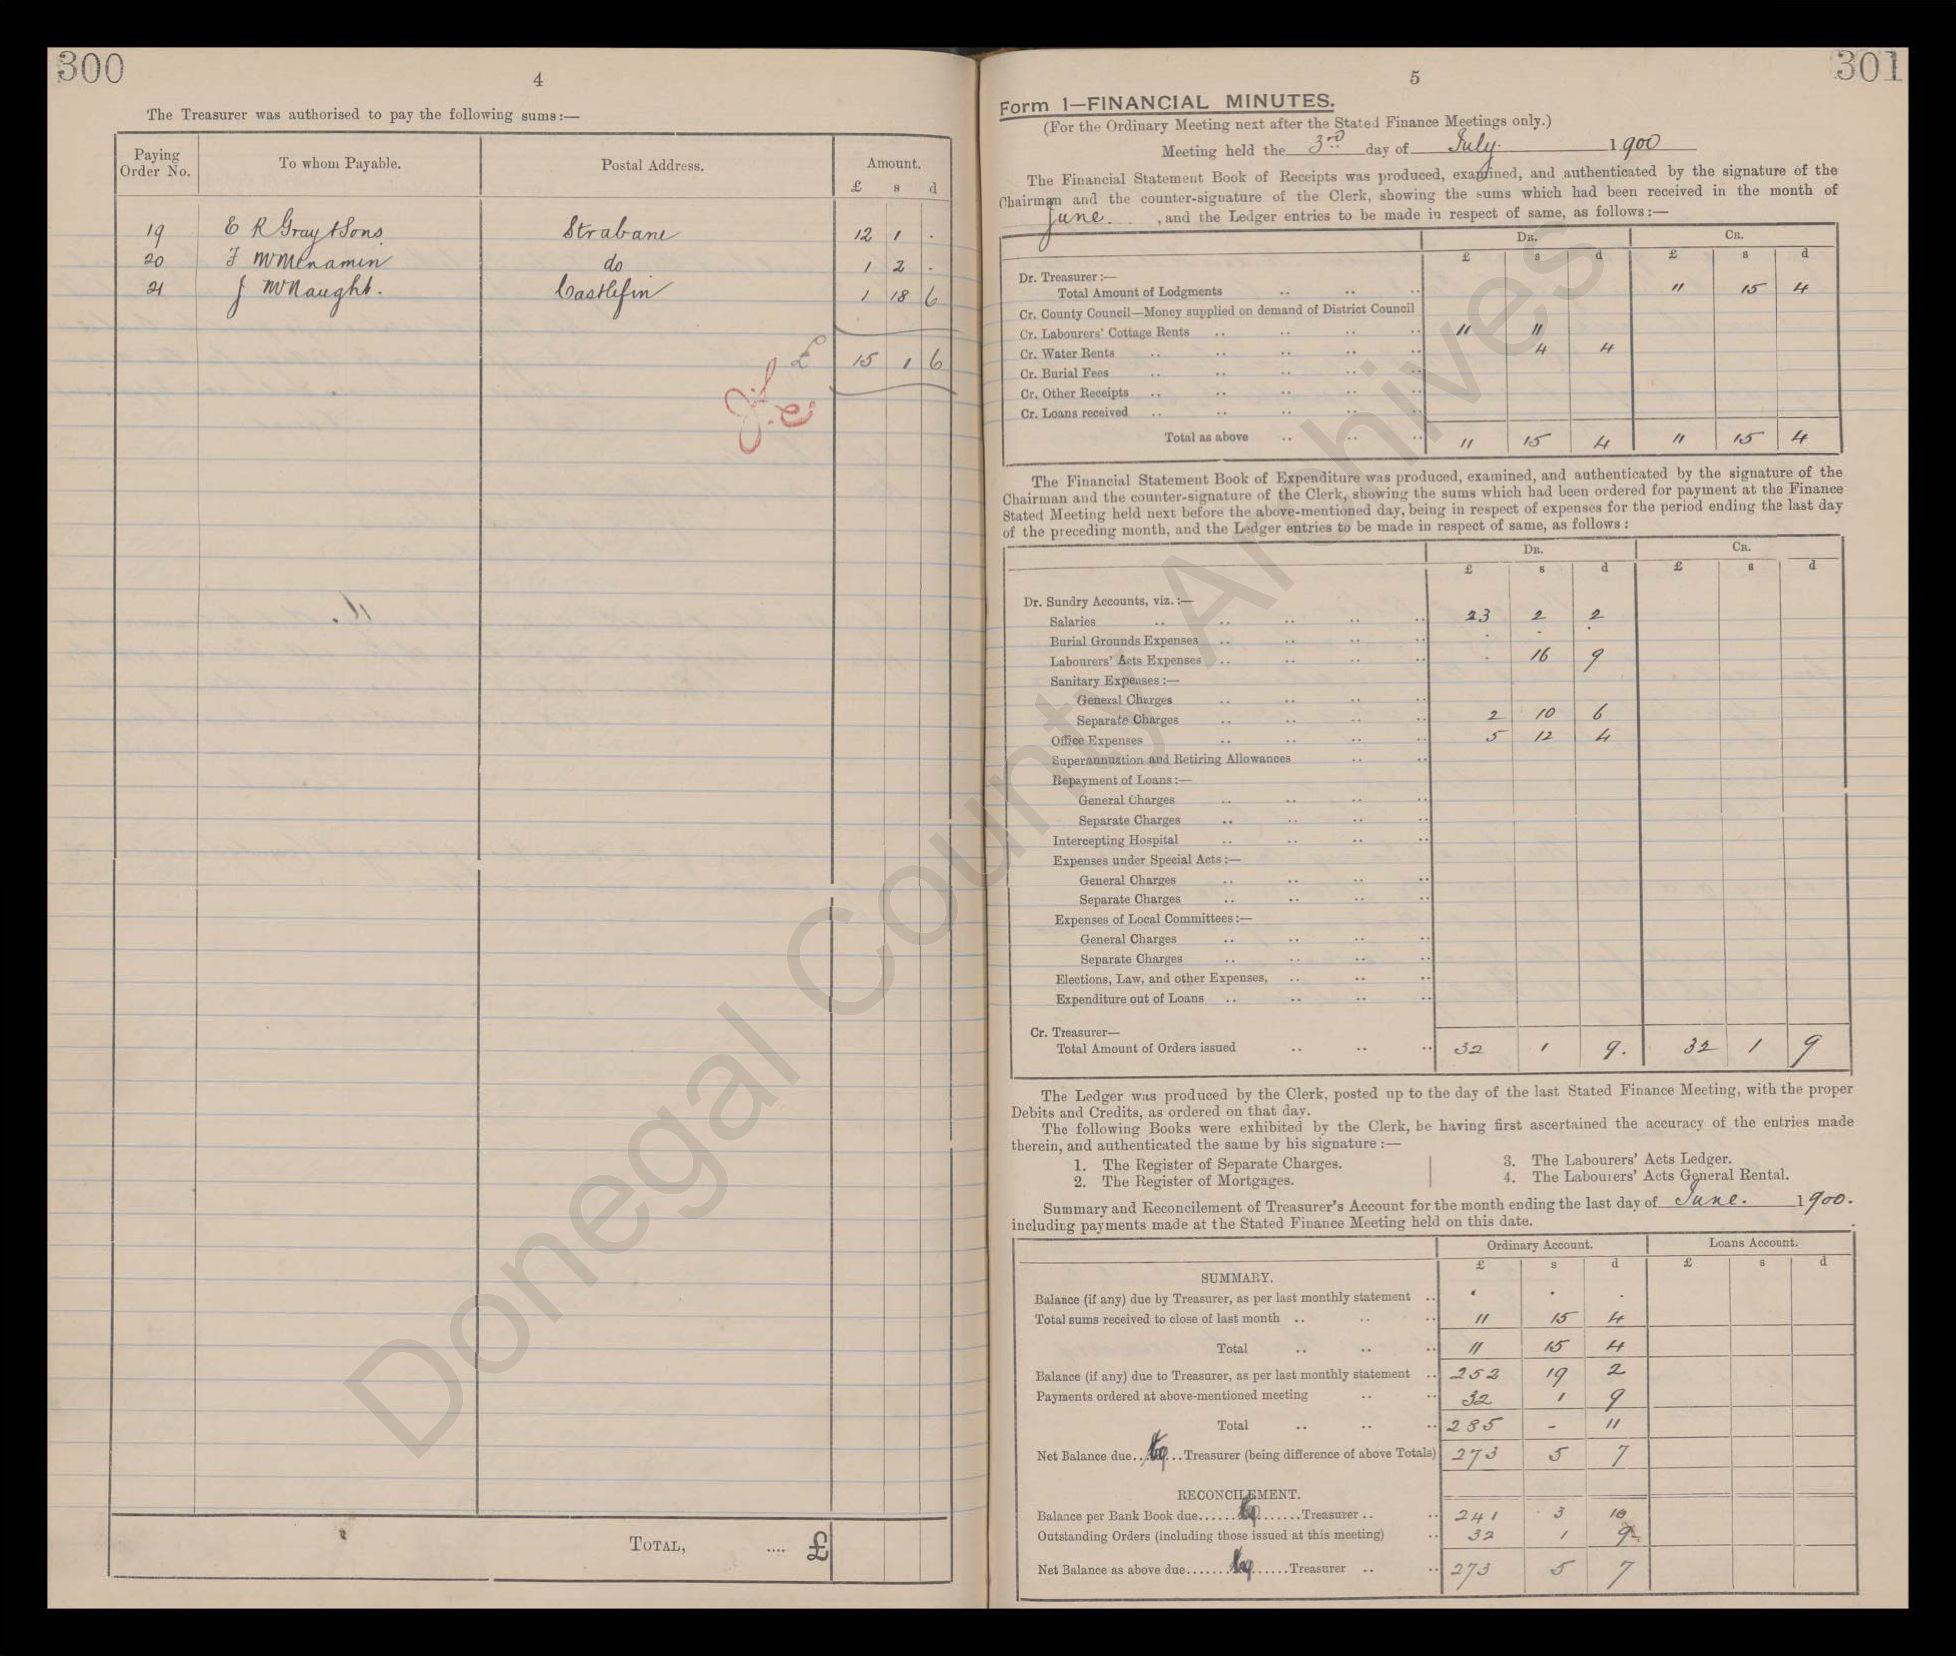 300
4
The Treasurer was authorised to pay the following sums:—
Paying Order No. To whom Payable. Postal Address. Amount.
£ s d
19 E R Gray & Sons Strabane 12 1 .
20 F McMenamin do 1 2 .
21 J McNaught. Castlefin 1 18 6
£ 15 1 6
TOTAL, .... £
301
5
Form 1—FINANCIAL MINUTES.
(For the Ordinary Meeting next after the Stated Finance Meetings only.)
Meeting held the 3rd day of July. 1900
The Financial Statement Book of Receipts was produced, examined, and authenticated by the signature of the
Chairman and the counter-signature of the Clerk, showing the sums which had been received in the month of
June. , and the Ledger entries to be made in respect of same, as follows:—
DR. CR.
£ s d £ s d
Dr. Treasurer:—
Total Amount of Lodgments .. .. .. 11 15 4
Cr. County Council—Money supplied on demand of District Council
Cr. Labourers' Cottage Rents .. .. .. .. 11 11
Cr. Water Rents .. .. .. .. 4 4
Cr. Burial Fees .. .. .. ..
Cr. Other Receipts .. .. .. ..
Cr. Loans received .. .. .. ..
Total as above .. .. .. 11 15 4 11 15 4
The Financial Statement Book of Expenditure was produced, examined, and authenticated by the signature of the
Chairman and the counter-signature of the Clerk, showing the sums which had been ordered for payment at the Finance
Stated Meeting held next before the above-mentioned day, being in respect of expenses for the period ending the last day
of the preceding month, and the Ledger entries to be made in respect of same, as follows:
DR. CR.
£ s d £ s d
Dr. Sundry Accounts, viz.:—
Salaries .. .. .. .. .. 23 2 2
Burial Grounds Expenses .. .. .. .. . . .
Labourers' Acts Expenses .. .. .. .. . 16 9
Sanitary Expenses:—
General Charges .. .. .. ..
Separate Charges .. .. .. .. 2 10 6
Office Expenses .. .. .. .. 5 12 4
Superannuation and Retiring Allowances .. ..
Repayment of Loans:—
General Charges .. .. .. ..
Separate Charges .. .. .. ..
Intercepting Hospital .. .. .. ..
Expenses under Special Acts:—
General Charges .. .. .. ..
Separate Charges .. .. .. ..
Expenses of Local Committees:—
General Charges .. .. .. ..
Separate Charges .. .. .. ..
Elections, Law, and other Expenses, .. .. ..
Expenditure out of Loans .. .. .. ..
Cr. Treasurer—
Total Amount of Orders issued .. .. .. 32 1 9. 32 1 9
The Ledger was produced by the Clerk, posted up to the day of the last Stated Finance Meeting, with the proper
Debits and Credits, as ordered on that day.
The following Books were exhibited by the Clerk, he having first ascertained the accuracy of the entries made
therein, and authenticated the same by his signature:—
1. The Register of Separate Charges. 3. The Labourers' Acts Ledger.
2. The Register of Mortgages. 4. The Labourers' Acts General Rental.
Summary and Reconcilement of Treasurer's Account for the month ending the last day of June. 1900.
including payments made at the Stated Finance Meeting held on this date.
Ordinary Account. Loans Account.
£ s d £ s d
SUMMARY.
Balance (if any) due by Treasurer, as per last monthly statement .. . . .
Total sums received to close of last month .. .. .. 11 15 4
Total .. .. .. 11 15 4
Balance (if any) due to Treasurer, as per last monthly statement .. 252 19 2
Payments ordered at above-mentioned meeting .. .. 32 1 9
Total .. .. .. 285 - 11
Net Balance due..to...Treasurer (being difference of above Totals) 273 5 7
RECONCILEMENT.
Balance per Bank Book due......to.......Treasurer .. .. 241 3 10
Outstanding Orders (including those issued at this meeting) .. 32 1 9
Net Balance as above due.......to......Treasurer .. .. 273 5 7
Donegal County Archives